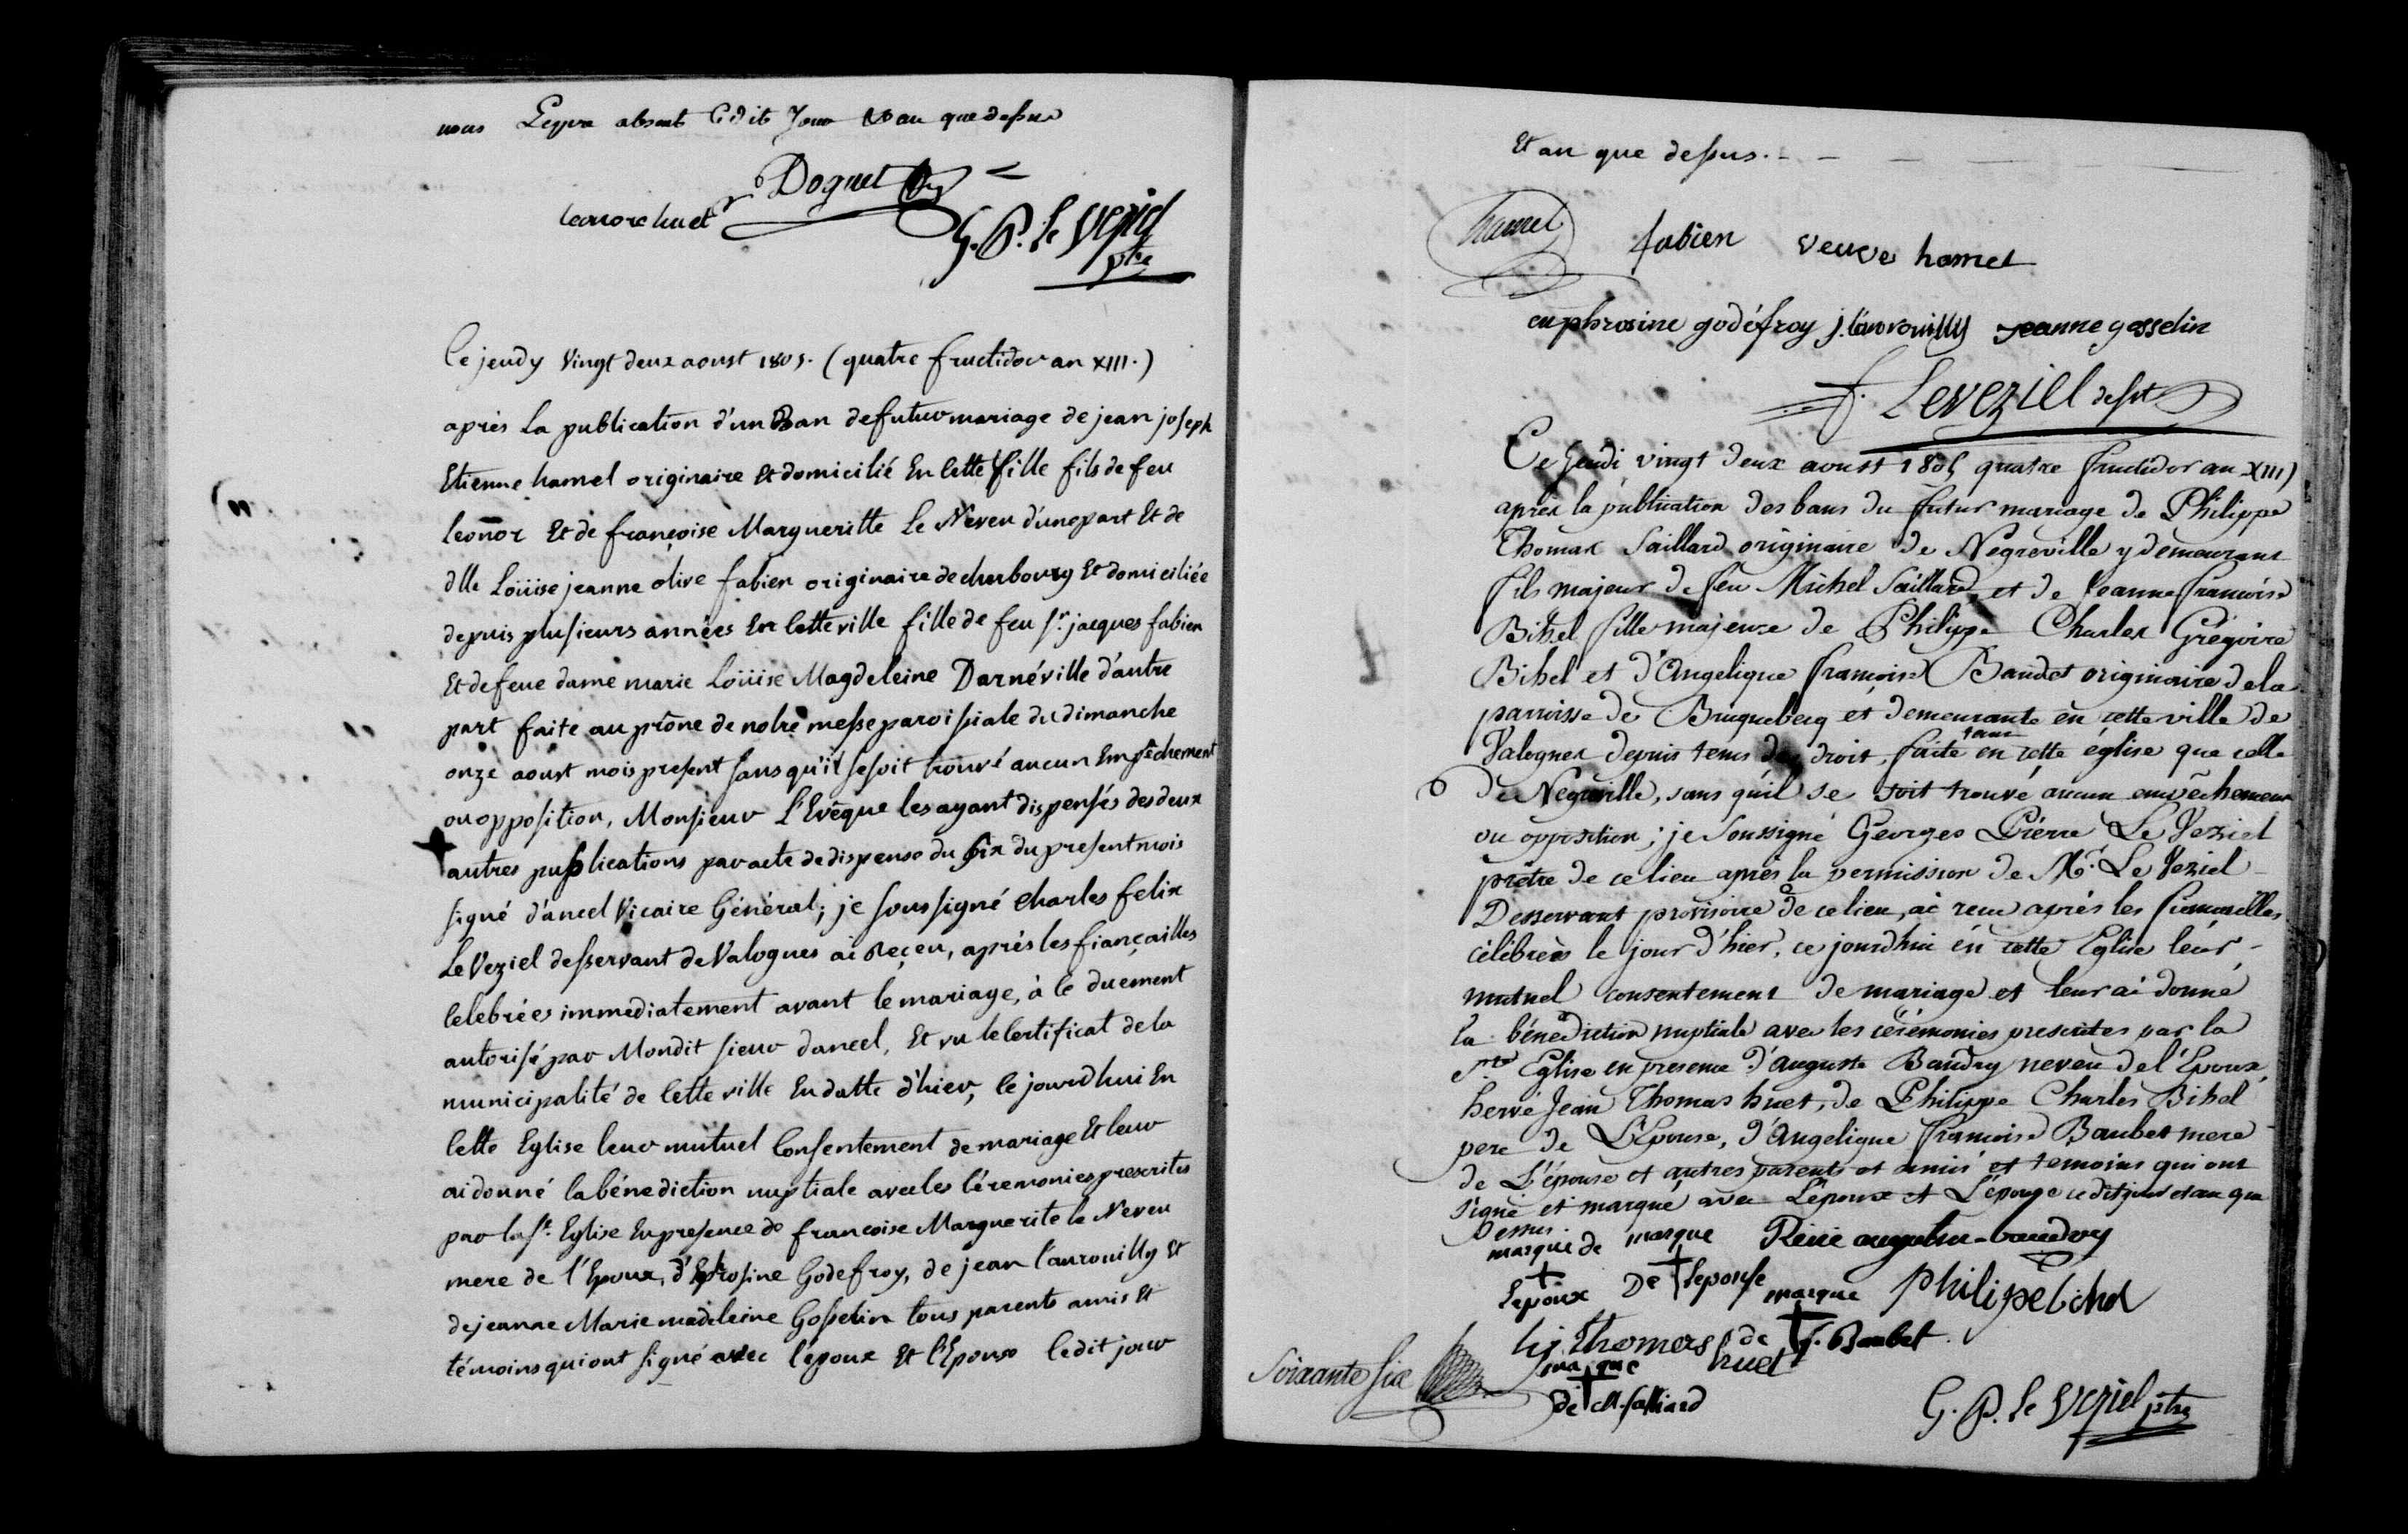 nous Le pere absent Ledit Jour et an que dessus
Doguet
leonore huet
G. P. le Veziel
ptre
Ce jeudy Vingt deux aoust 1805. (quatre fructidor an XIII.)
après la publication d'un Ban de futur mariage de jean joseph
Etienne hamel originaire Et domicilié En Cette Ville fils de feu
leonor Et de françoise Margueritte Le Neveu d'une part Et de
dlle Loüise jeanne olive fabien originaire de cherbourg Et domiciliée
depuis plusieurs années En Cette ville fille de feu Sr. jacques fabien
Et de feue dame marie Loüise Magdeleine Darnéville d'autre
part faite au prône de notre messe paroissiale du dimanche
onze aoust mois present sans qu'il se soit trouvé aucun Empêchement
ou opposition, Monsieur L'Evêque les ayant dispensés des deux
autres publications par acte de dispense du Six du present mois
signé d'ancel Vicaire Général; je soussigné Charles felix
Le Veziel desservant de Valognes ai Reçeu, après les fiançailles
Celebrées immediatement avant le mariage, à Ce duement
autorisé par Mondit sieur dancel, Et vu le Certificat de la
municipalité de Cette ville En datte d'hier, Ce jourd'hui En
Cette Eglise leur mutuel Consentement de mariage Et leur
ai donné la bénediction nuptiale avec les Céremonies prescrites
par la Ste. Eglise En presence de francoise Marguerite le Neveu
mere de l'Epoux, d'Ephrosine Godefroy, de jean Caurouilly Et
de jeanne Marie madeleine Gosselin tous parents amis Et
témoins qui ont signé avec l'époux Et l'Epouse Cedit jour
Et an que dessus. - - - -
hamel fabien veuve hamel
euphrosine godéfroy jeanne gosselin
f. Leveziel desst
Ce Jeudi vingt deux aoust 1805 quatre fructidor an XIII)
après la publication des bans du futur mariage de Philippe
Thomas Saillard originaire de Negreville y demeurant
fils majeur de feu Michel Saillard et de Jeanne francoise
Bihel fille majeure de Philippe Charles Grégoire
Bihel et d'Angelique francoise Baudet originaire de la
parroisse de Bricquebecq et demeurante en cette ville de
Valognes depuis tems de droit, faite tant en cette église que celle
de Negreville, sans qu'il se soit trouvé aucun empêchement
ou opposition; je Soussigné Georges Pierre Le Veziel
prêtre de ce lieu après la permission de Mr. Le Veziel
Desservant provisoire de ce lieu, ai recu après les fiancailles
célébrées le jour d'hier, ce jourdhui en cette Eglise leur
mutuel consentement de mariage et leur ai donné
la bénédiction nuptiale avec les cérémonies prescrites par la
Ste Eglise en presence d'auguste Baudry neveu de l'Epoux,
hervé Jean Thomas huet, de Philippe Charles Bihel
pere de L'Epouse, d'Angelique francoise Baubet mere
de L'épouse et autres parents et amis et temoins qui ont
signé et marqué avec L'epoux et L'épouse cedit jour et an que
Dessus.
marque de marque Réné augustin baudry
Lepoux De Lepouse marque philipe bihel
hj thomas huet de f. Baubet.
marque
de M. Salliard
Soixante Six
G. P. le Veziel ptre